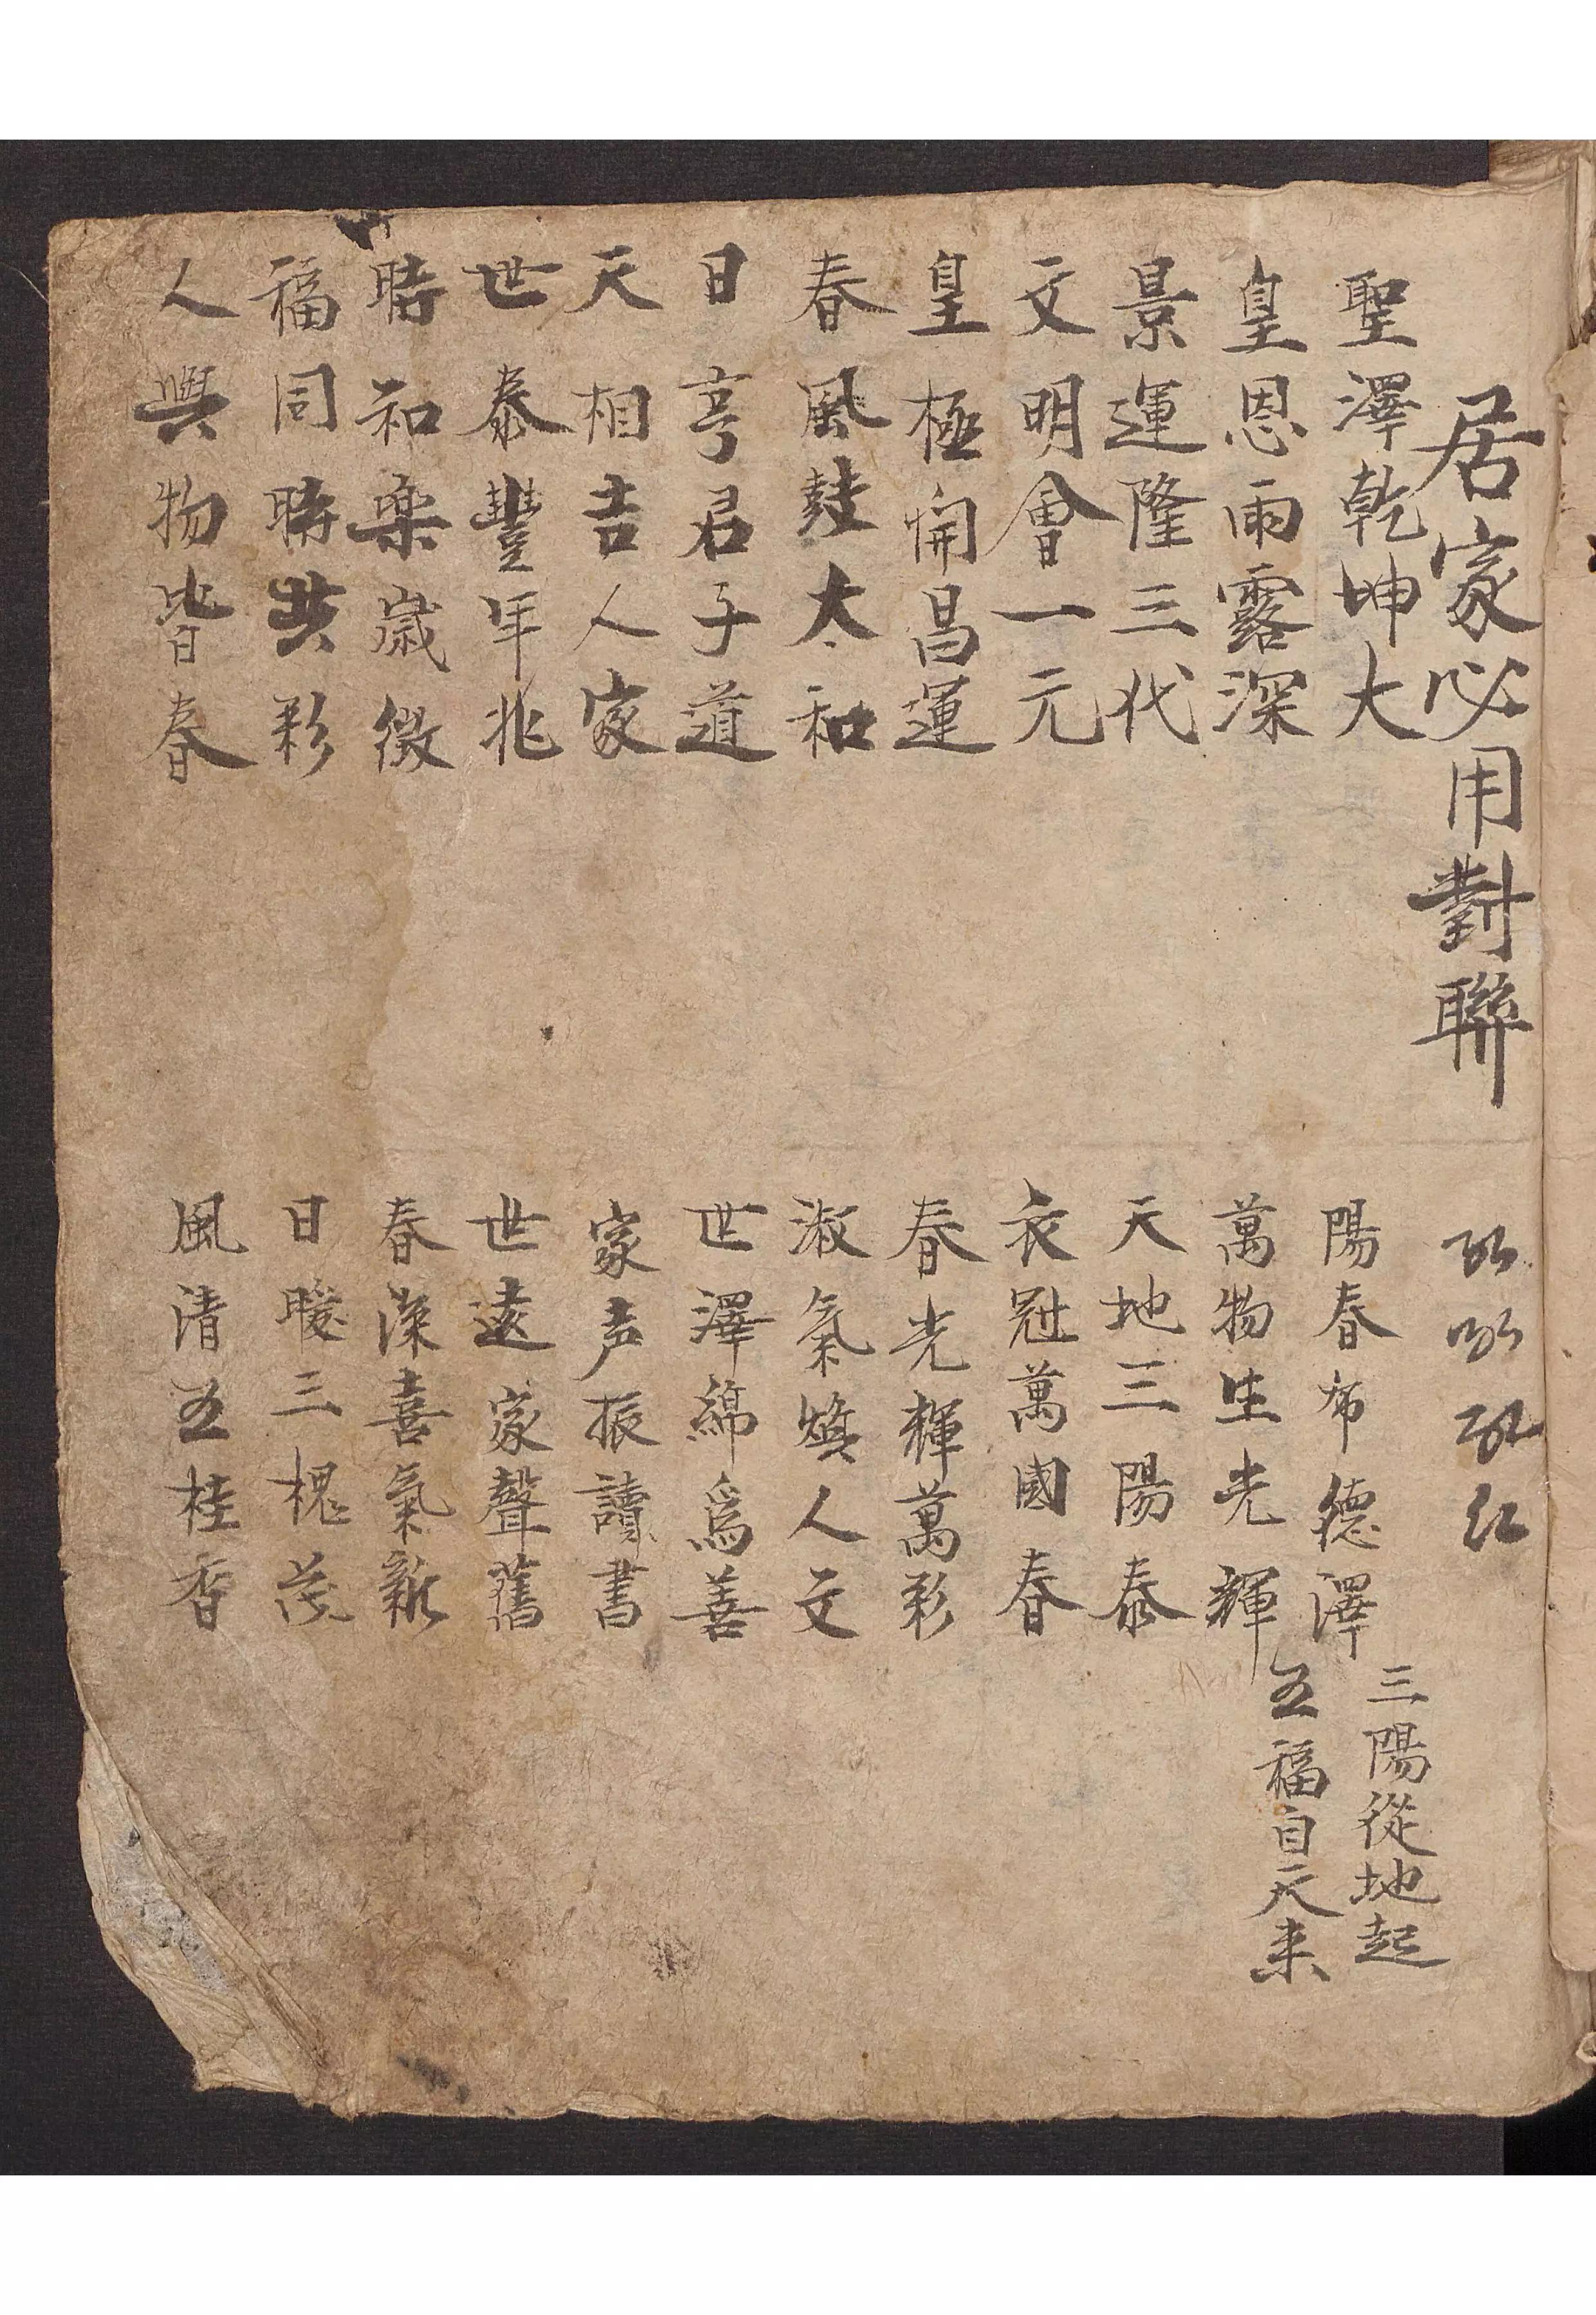 居家必用對聯
聖澤乾坤大
皇恩雨露深
景運隆三代
文明會一元
皇極開昌運
春風鼓太和
日亨君子道
天相吉人家
世泰豐年兆
時和樂歲徵
福同時共彩
人與物皆春
紅
陽春布德澤
萬物生光輝
天地三陽泰
衣冠萬國春
春光輝萬彩
淑氣煥人文
世澤綿爲善
家声振讀書
世遠家聲舊
春深喜氣新
日暖三槐茂
風清五桂香
三陽從地起
五福自天来